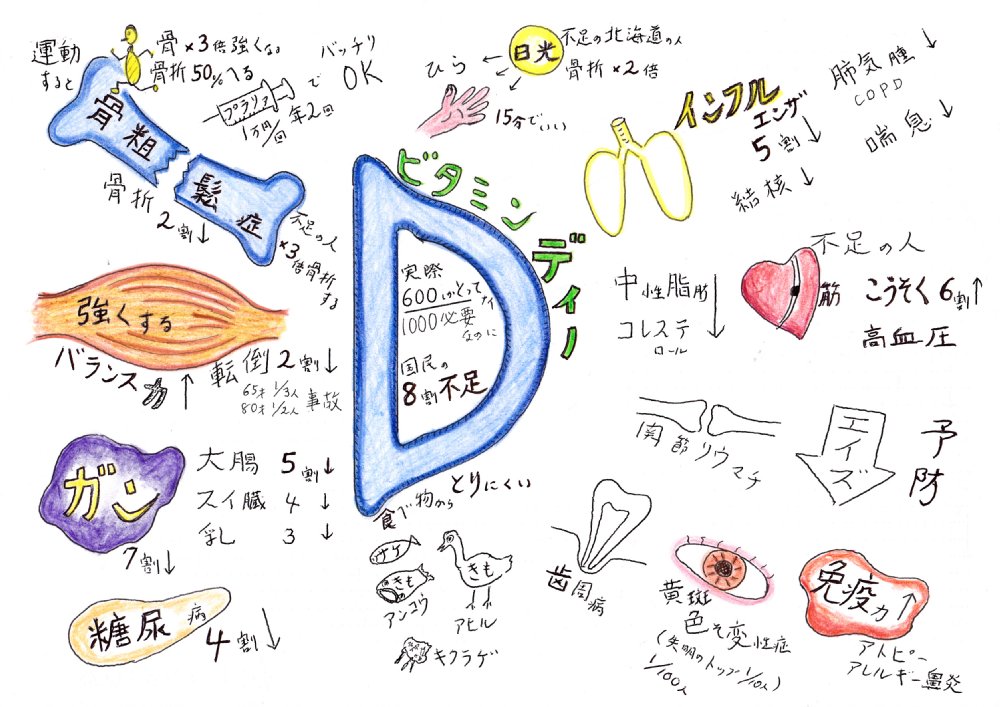 運動
すると
骨×3倍強くなる
骨折50%へる
プラリア
1万円/回
年2回
で
バッチリ
OK
骨粗
鬆症
骨折
2割↓
不足の人
×3
倍骨折
する
ひら
日光
15分でいい
不足の北海道の人
骨折×2倍
インフル
エンザ
5割↓
結核↓
肺気腫↓
COPD
喘息↓
ビタミン
ディー
D
実際
600しかとってナイ
1000必要
なのに
国民の
8割不足
強くする
バランス
力↑
転倒2割↓
65才1/3人
80才1/2人
事故
中性脂肪
コレステ
ロール
↓
不足の人
心筋こうそく6割↑
高血圧
ガン
7割↓
大腸 5割↓
スイ臓 4↓
乳 3↓
糖尿病
4割↓
食べ物から
とりにくい
サケ
きも
アンコウ
きも
アヒル
キクラゲ
関節リウマチ
エイズ
予防
歯周病
黄斑
色そ変性症
(失明のトップ1/10人)
1/100人
免疫力↑
アトピー
アレルギー鼻炎